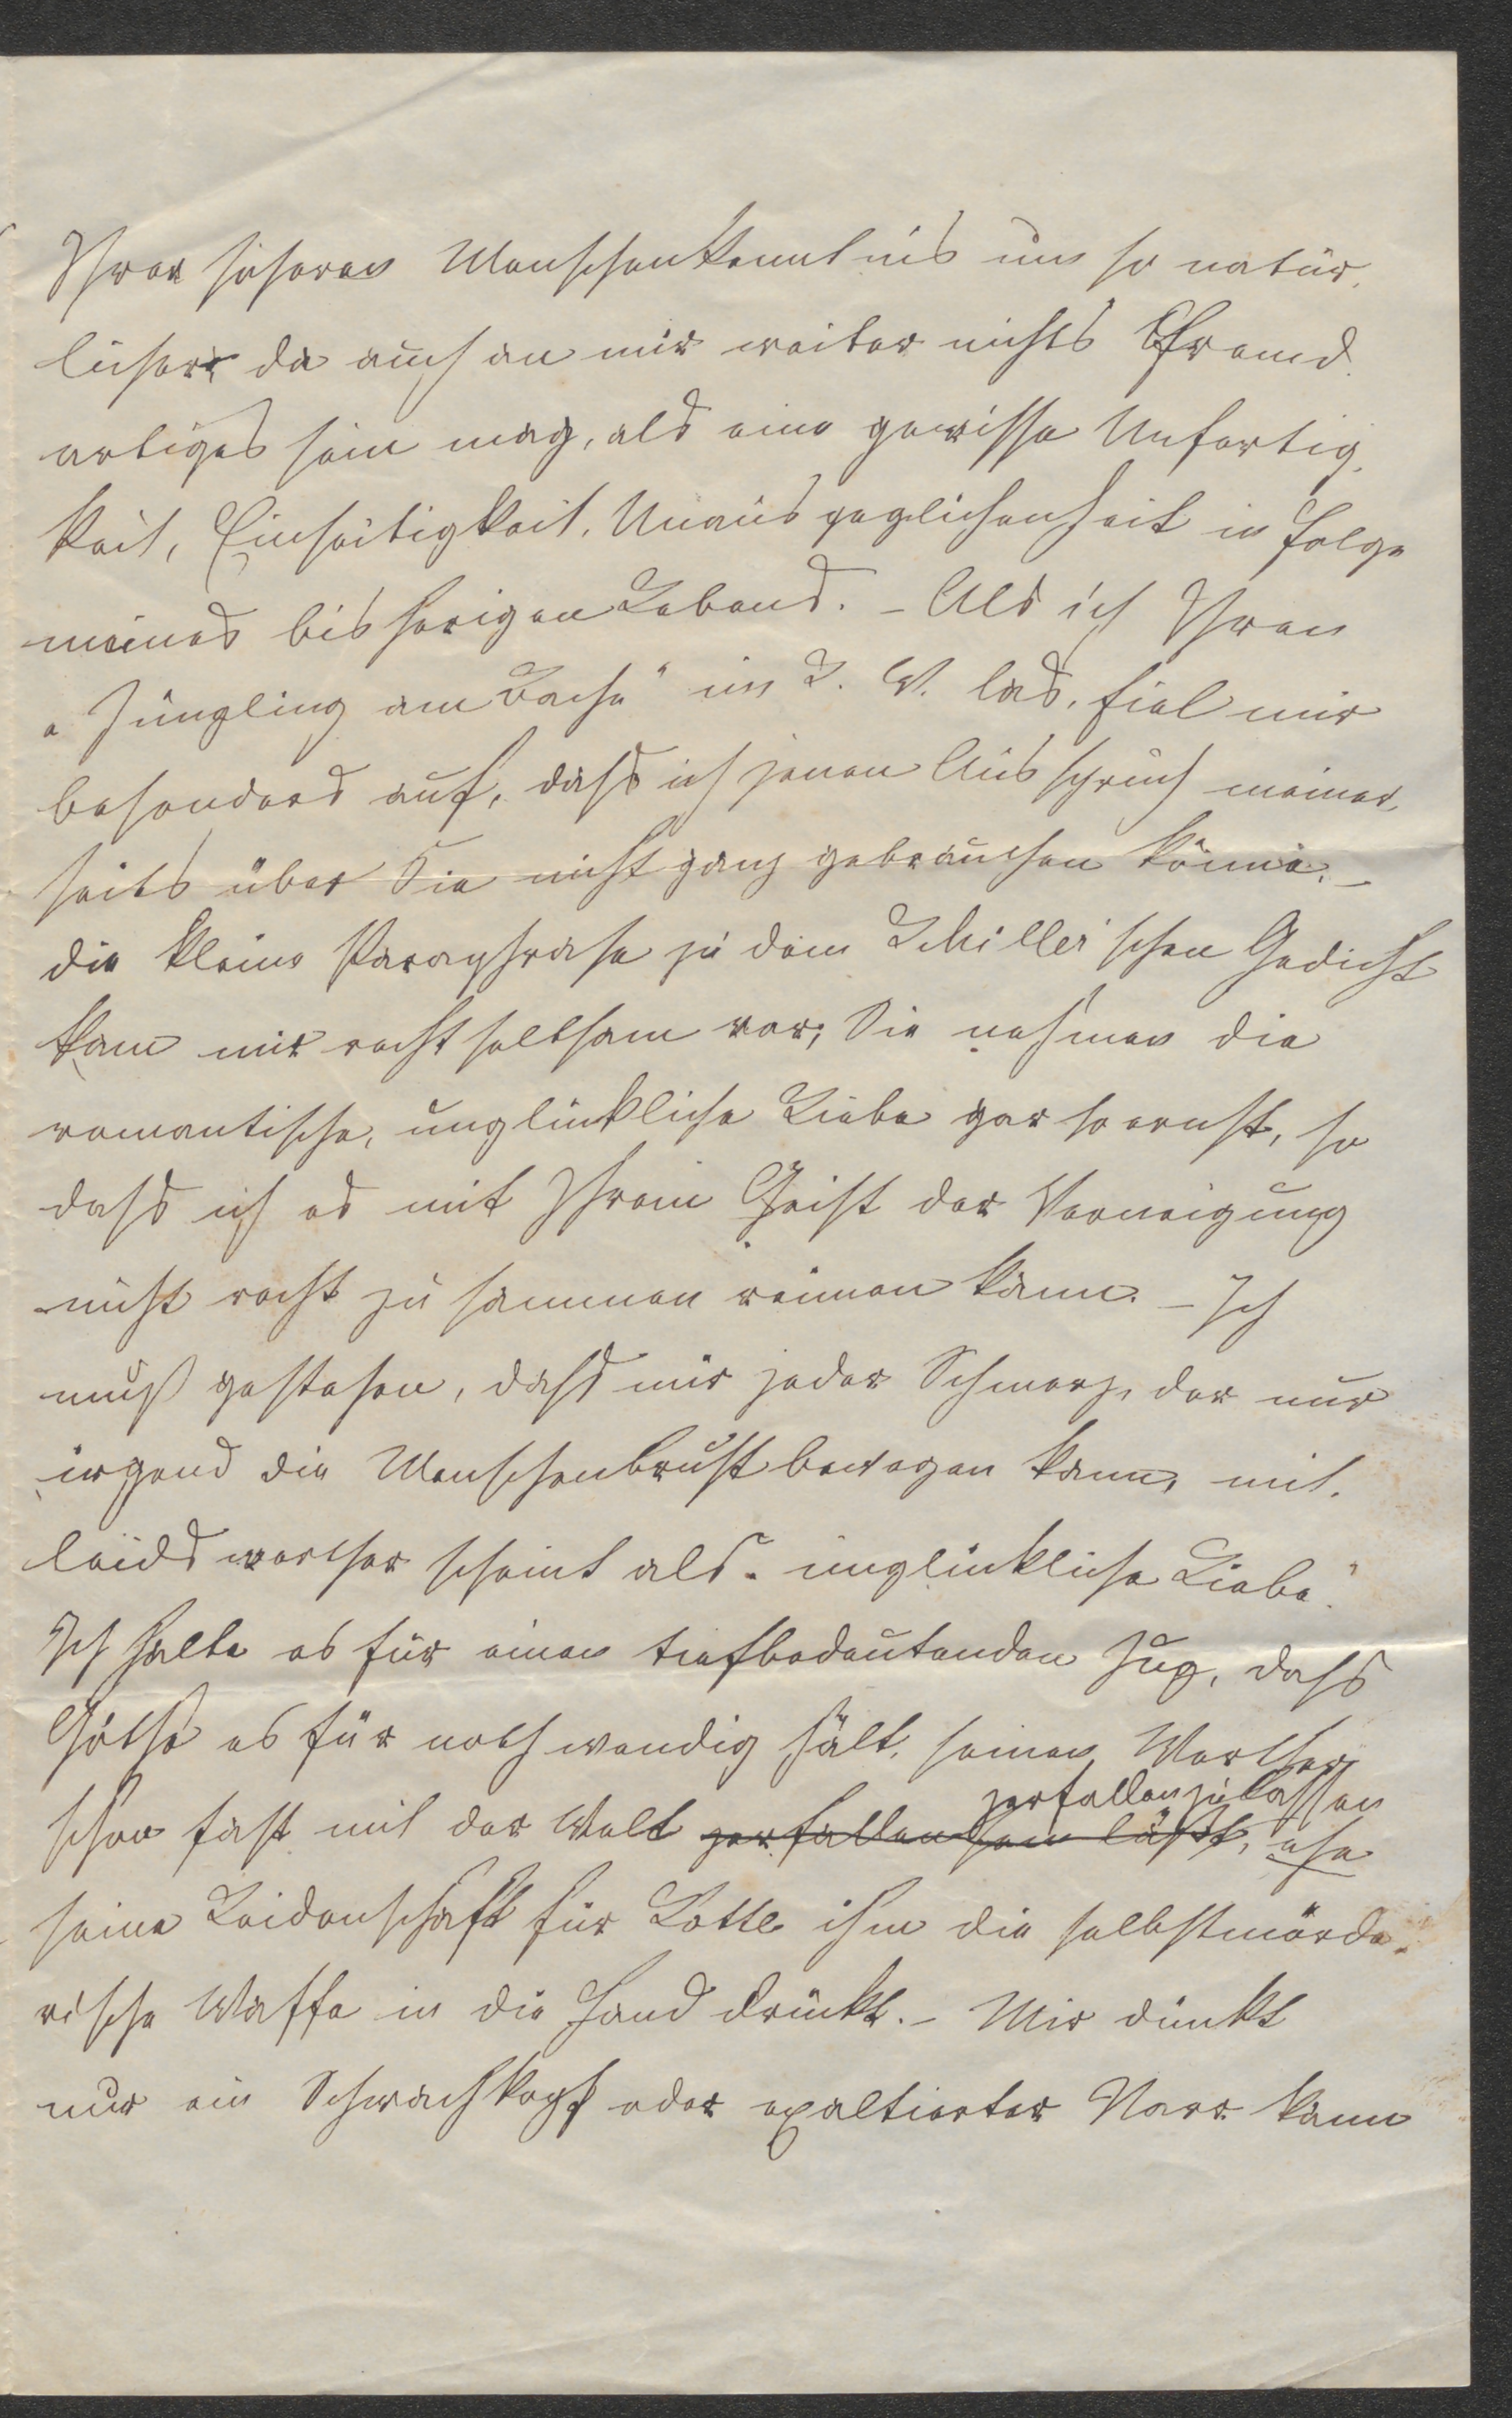 Ihrer höheren Menschenkenntnis um so natür-
licher, da auch an mir weiter nichts Fremd-
artiges sein mag, als eine gewisse Unfertig-
keit, Einseitigkeit, Unausgeglichenheit in Folge
meines bisherigen Lebens. – Als ich Ihren
„Jüngling am Bache" im L. W. las, fiel mir
besonders auf, dass ich jenen Ausspruch meiner-
seits über Sie nicht ganz gebrauchen könne. –
die kleine Paraphrase zu dem Schiller'schen Gedicht
kam mir recht seltsam vor; Sie nehmen die
romantische, unglückliche Liebe gar so ernst, so
dass ich es mit Ihrem Geist der Verneigung
nicht recht zusammen reimen kann. – Ich
muß gestehen, dass mir jeder Schmerz, der nur
irgend die Menschenbrust bewegen kann, mit-
leidswerther scheint als „unglückliche Liebe."
Ich halte es für einen tiefbedeutenden Zug, dass
Göthe es für nothwendig hält, seinen Werther
zerfallen zu lassen
schon fast mit der Welt zerfallen sein läßt, ehe
seine Leidenschaft für Lotte ihm die selbstmörde-
rische Waffe in die Hand drückt. – Mir dünkt
nur ein Schwachkopf oder exaltierter Narr kann